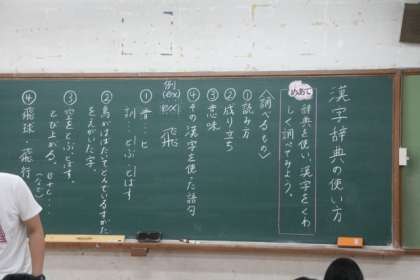 漢字辞典の使い方
めあて
辞典を使い、漢字をくわ
しく調べてみよう。
〈調べるもの〉
①読み方
②成り立ち
③意味
④その漢字を使った語句
例(ex)
飛
①音…ヒ
訓…とぶ・とばす
②鳥がはばたいてとんでいるすがた
をえがいた字。
③空をとぶ、とばす。
とび上がる。
④飛球・飛行